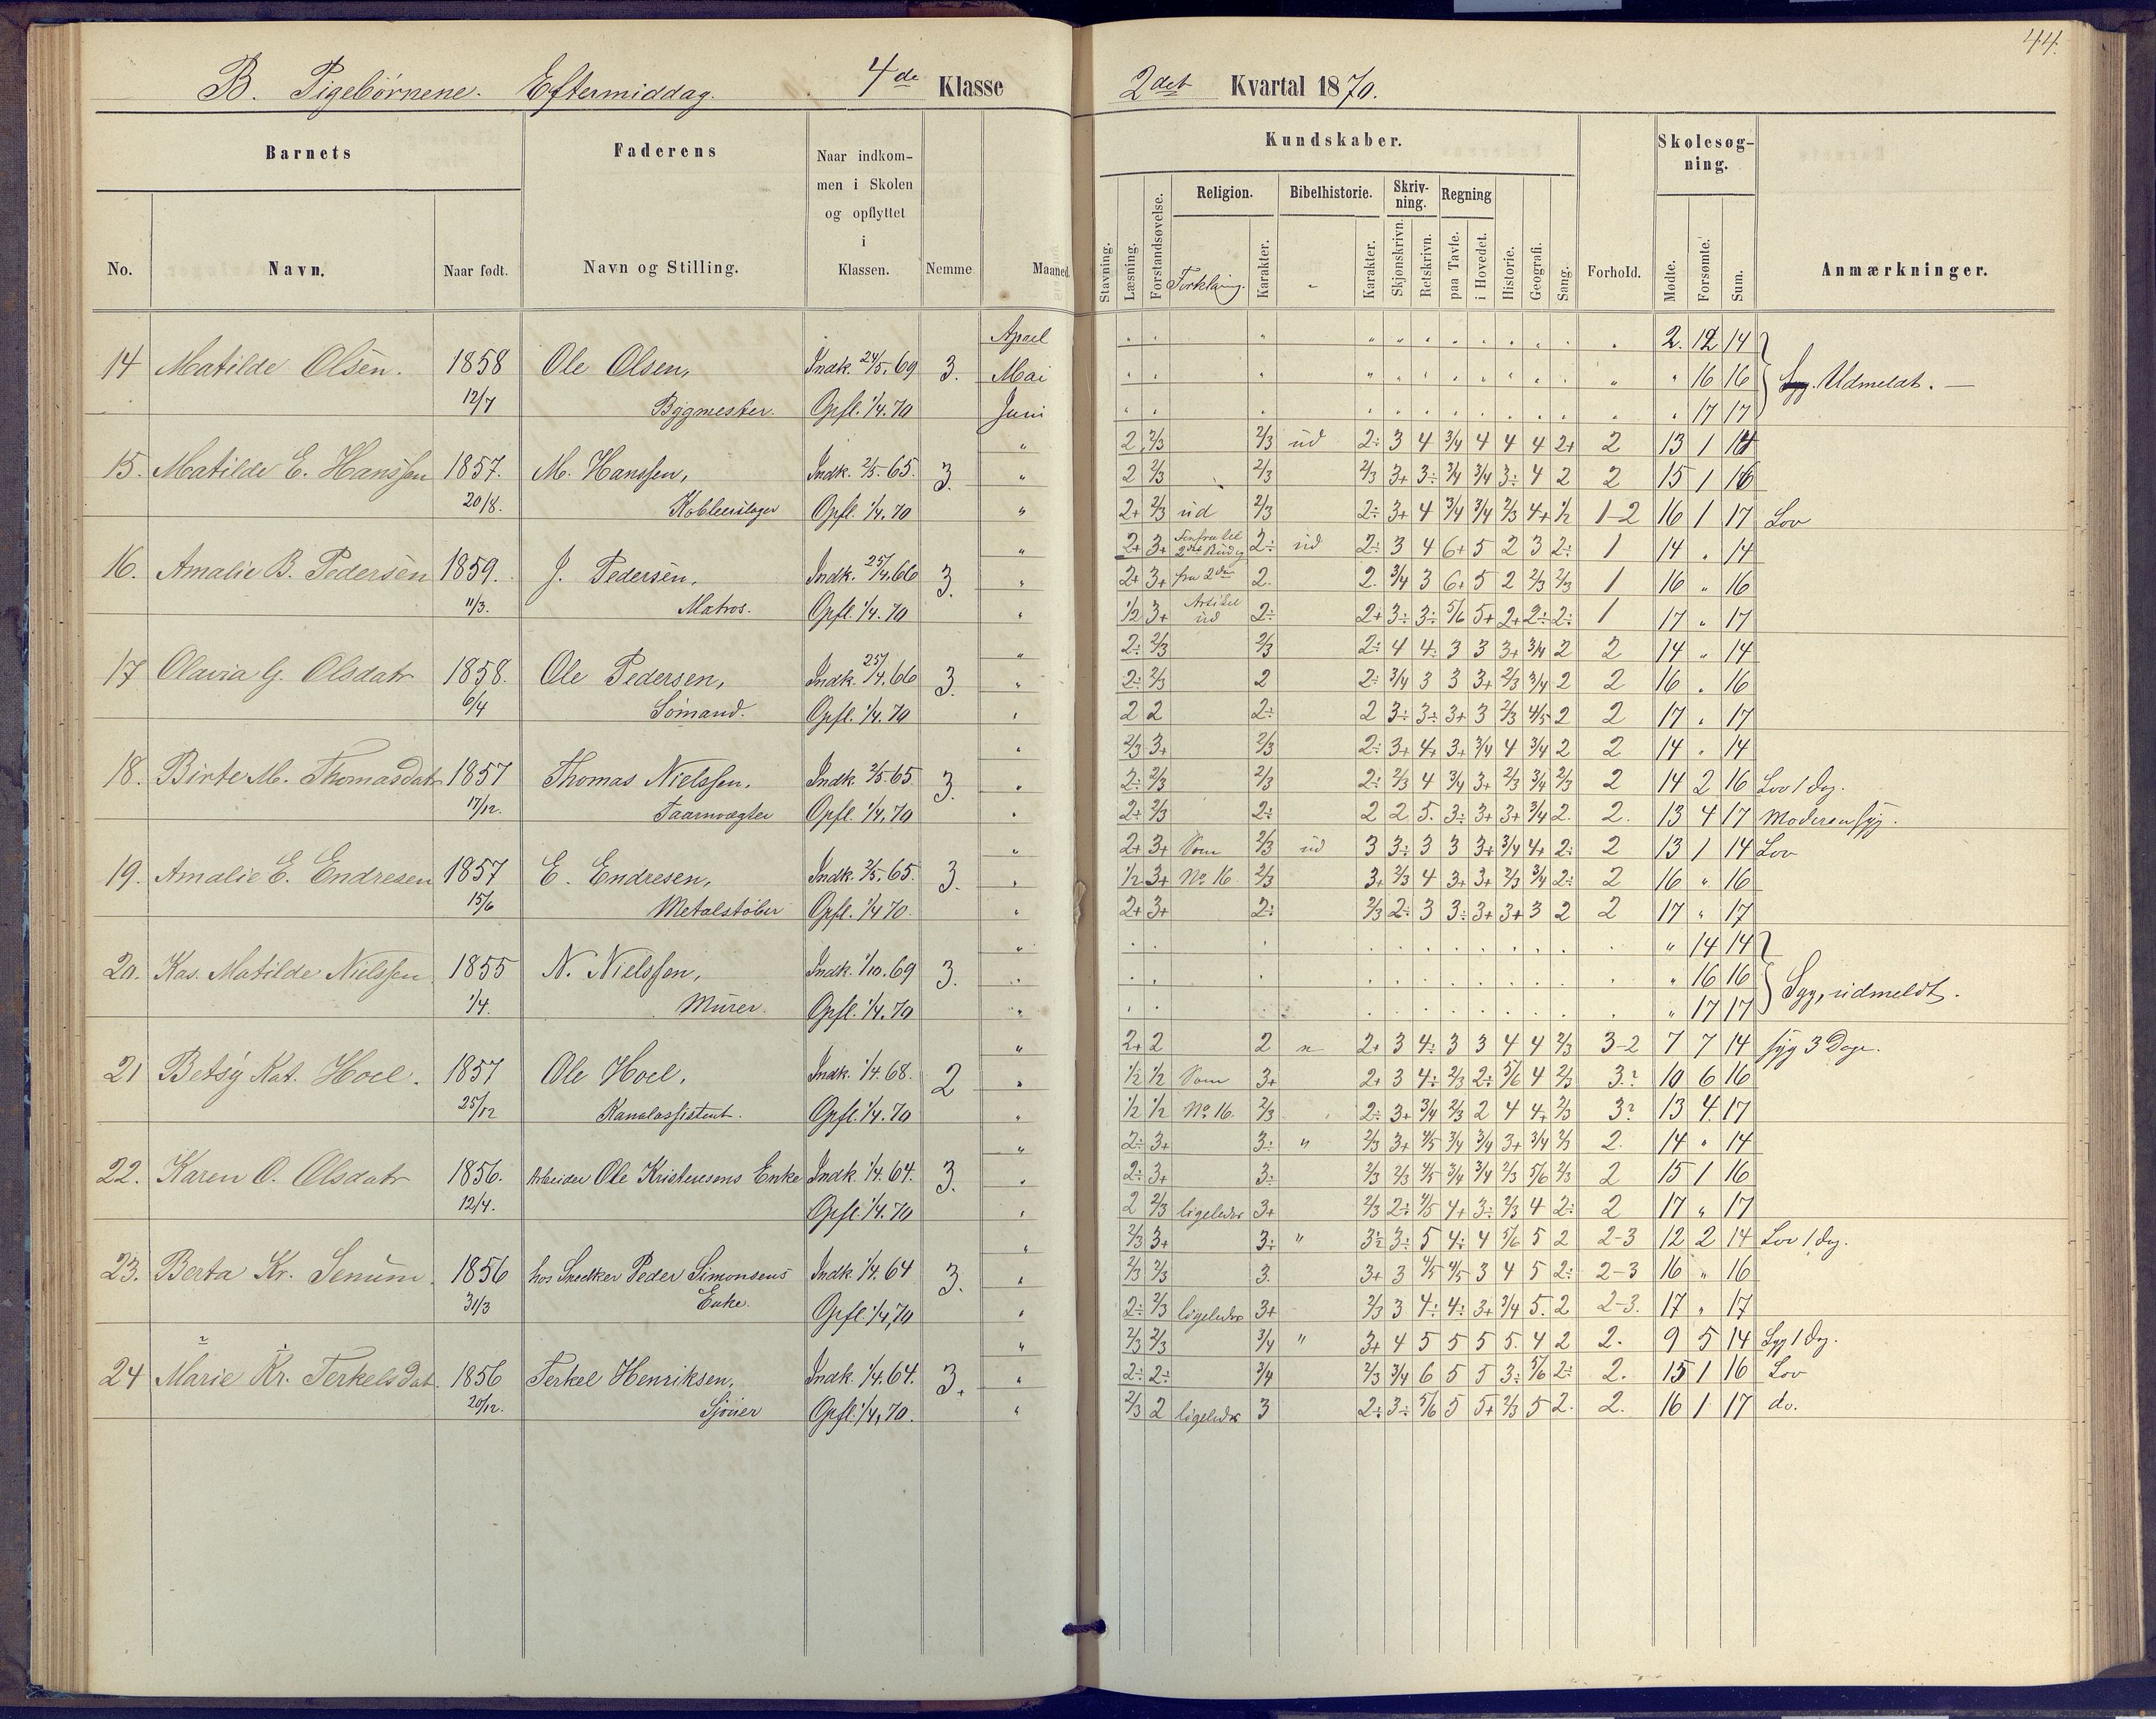 44.
B. Pigebörnene. Eftermiddag. 4de Klasse
2det Kvartal 1870.
Barnets
Faderens
Naar indkommen i Skolen og opflyttet i Klassen.
Nemme
Maaned
Kundskaber.
Skolesøgning.
No.
Navn.
Naar født.
Navn og Stilling.
Stavning.
Læsning.
Forstandsøvelse.
Religion.
Forklaring.
Karakter.
Bibelhistorie.
Karakter.
Skrivning.
Skjønskrivn.
Retskrivn.
Regning
paa Tavle.
i Hovedet.
Historie.
Geografi.
Sang.
Forhold.
Mødte.
Forsømte.
Sum.
Anmærkninger.
14 Matilde Olsen. 1858 Ole Olsen, Indk. 24/5.69 3. April 2. 12 14
12/7 Bygmester. Opfl. 1/4.70 Mai " 16 16 Udmeldt. —
Juni " 17 17
15. Matilde E. Hanssen 1857. M. Hanssen, Indk. 2/5-65. 3. " 2 2/3 2/3 ud 2÷ 3 4 3/4 4 4 4 2+ 2 13 1 14
20/8. Opfl. 1/4.70 " 2 2/3 2/3 2/3 3+ 3÷ 3/4 3/4 3÷ 4 2 2 15 1 16
" 2+ 2/3 ud 2/3 2÷ 3+ 4 3/4 3/4 2/3 4+ 1/2 1-2 16 1 17 Lov
16. Amalie B. Pedersen 1859. J. Pedersen, Indk. 25/4.66 3. " 2+ 3+ 2÷ ud 2÷ 3 4 6+ 5 2 3 2÷ 1 14 " 14
11/3. Matros. Opfl. 1/4.70 " 2+ 3+ fra 2den 2. 2. 3/4 3 6+ 5 2 2/3 2/3 1 16 " 16
" 1/2 3+ Artikel ud 2÷ 2+ 3÷ 3÷ 5/6 5+ 2+ 2÷ 2÷ 1 17 " 17
17 Olavia G. Olsdatr 1858. Ole Pedersen, Indk. 25/4.66 3. " 2÷ 2/3 2/3 2÷ 4 4÷ 3 3 3+ 3/4 2 2 14 " 14
6/4 Sömand. Opfl. 1/4.70 " 2÷ 2/3 2 2÷ 3/4 3 3 3+ 2/3 3/4 2 2 16 " 16
" 2 2 2÷ 2 3÷ 3÷ 3+ 3 2/3 4/5 2 2 17 " 17
18. Birte M. Thomasdatr 1857 Thomas Nielssen, Indk. 2/5 65. 3. " 2/3 3+ 2/3 2÷ 3+ 4+ 3+ 3/4 4 3/4 2 2 14 " 14
17/12. Taarnvægter Opfl. 1/4.70 " 2÷ 2/3 2/3 2÷ 2/3 4 3/4 3+ 2/3 3/4 2/3 2 14 2 16 Lov 1 Dag.
" 2÷ 2/3 2÷ 2 2 5. 3÷ 3+ 3+ 3/4 2. 2. 13 4 17 Moderen syg.
19. Amalie E. Endresen 1857 E. Endresen, Indk. 2/5.65. 3. " 2+ 3+ Som 2/3 ud 3 3÷ 3 3 3+ 3/4 4+ 2÷ 2 13 1 14 Lov
15/6 Metalstöber Opfl. 1/4 70. " 1/2 3+ No 16. 2/3 3+ 2/3 4 3+ 3+ 2/3 3/4 2÷ 2 16 " 16
" 2+ 3+ 2÷ 2/3 2÷ 3 3÷ 3+ 3+ 3 2 2 17 " 17
20. Kas. Matilde Nielssen. 1855 N. Nielssen, Indk. 1/10.69 3. " " 14 14
1/4. Murer. Opfl. 1/4.70 " " 16 16 Syg, udmeldt.
" " 17 17
21 Betsy Kat. Hoel. 1857 Ole Hoel, Indk. 1/4.68. 2 " 2+ 2 2 2+ 3 4÷ 3 3 4 4 2/3 3-2 7 7 14 syg 3 Dage.
25/12 Kanalassistent. Opfl. 1/4.70 " 1/2 1/2 Som 3+ 2+ 3 4÷ 2/3 2÷ 5/6 4 2/3 3? 10 6 16
" 1/2 1/2 No 16. 2/3 2÷ 3+ 3/4 2/3 2 4 4+ 2/3 3? 13 4. 17
22. Karen O. Olsdatr 1856. Arbeider Ole Kristensens Enke Indk. 1/4.64. 3. " 2÷ 3+ 3÷ " 2/3 3+ 4/5 3/4 3/4 3+ 3/4 2/3 2. 14 " 14
12/4. Opfl. 1/4.70 " 2÷ 3+ 3÷ 2/3 2/3 4/5 3/4 3/4 2/3 5/6 2/3 2 15 1 16
" 2 2/3 ligeledes 3+ 2/3 2÷ 4/5 4+ 3÷ 2/3 4 2÷ 2 17 " 17
23. Berta Kr. Senum. 1856 hos Snedker Peder Simonsens Indk. 1/4.64 3. " 2/3 3+ 3÷ " 3÷ 3÷ 5 4÷ 4 5/6 5 2 2-3 12 2 14 Lov 1 Dag.
31/3 Enke. Opfl. 1/4.70 " 2/3 2/3 3. 3+ 3 4/5 4/5 3 4 5 2÷ 2-3 16 " 16
" 2÷ 2/3 ligeledes 3+ 2/3 3 4÷ 4÷ 3+ 3/4 5. 2 2-3. 17 " 17
24 Marie Kr. Terkelsdat. 1856 Terkel Henriksen, Indk. 1/4.64. 3. " 2/3 2/3 3/4 " 3+ 4 5 5 5 5. 4 2 2. 9 5 14 Syg 1 Dag.
20/12. Sjouer Opfl. 1/4.70. " 2÷ 2÷ 3/4 2/3 3/4 6 5 5 3÷ 5/6 2÷ 2. 15 1 16 Lov
" 2/3 2 ligeledes 3 2÷ 3÷ 5/6 5 5+ 2/3 5 2. 2. 16 1 17 do.